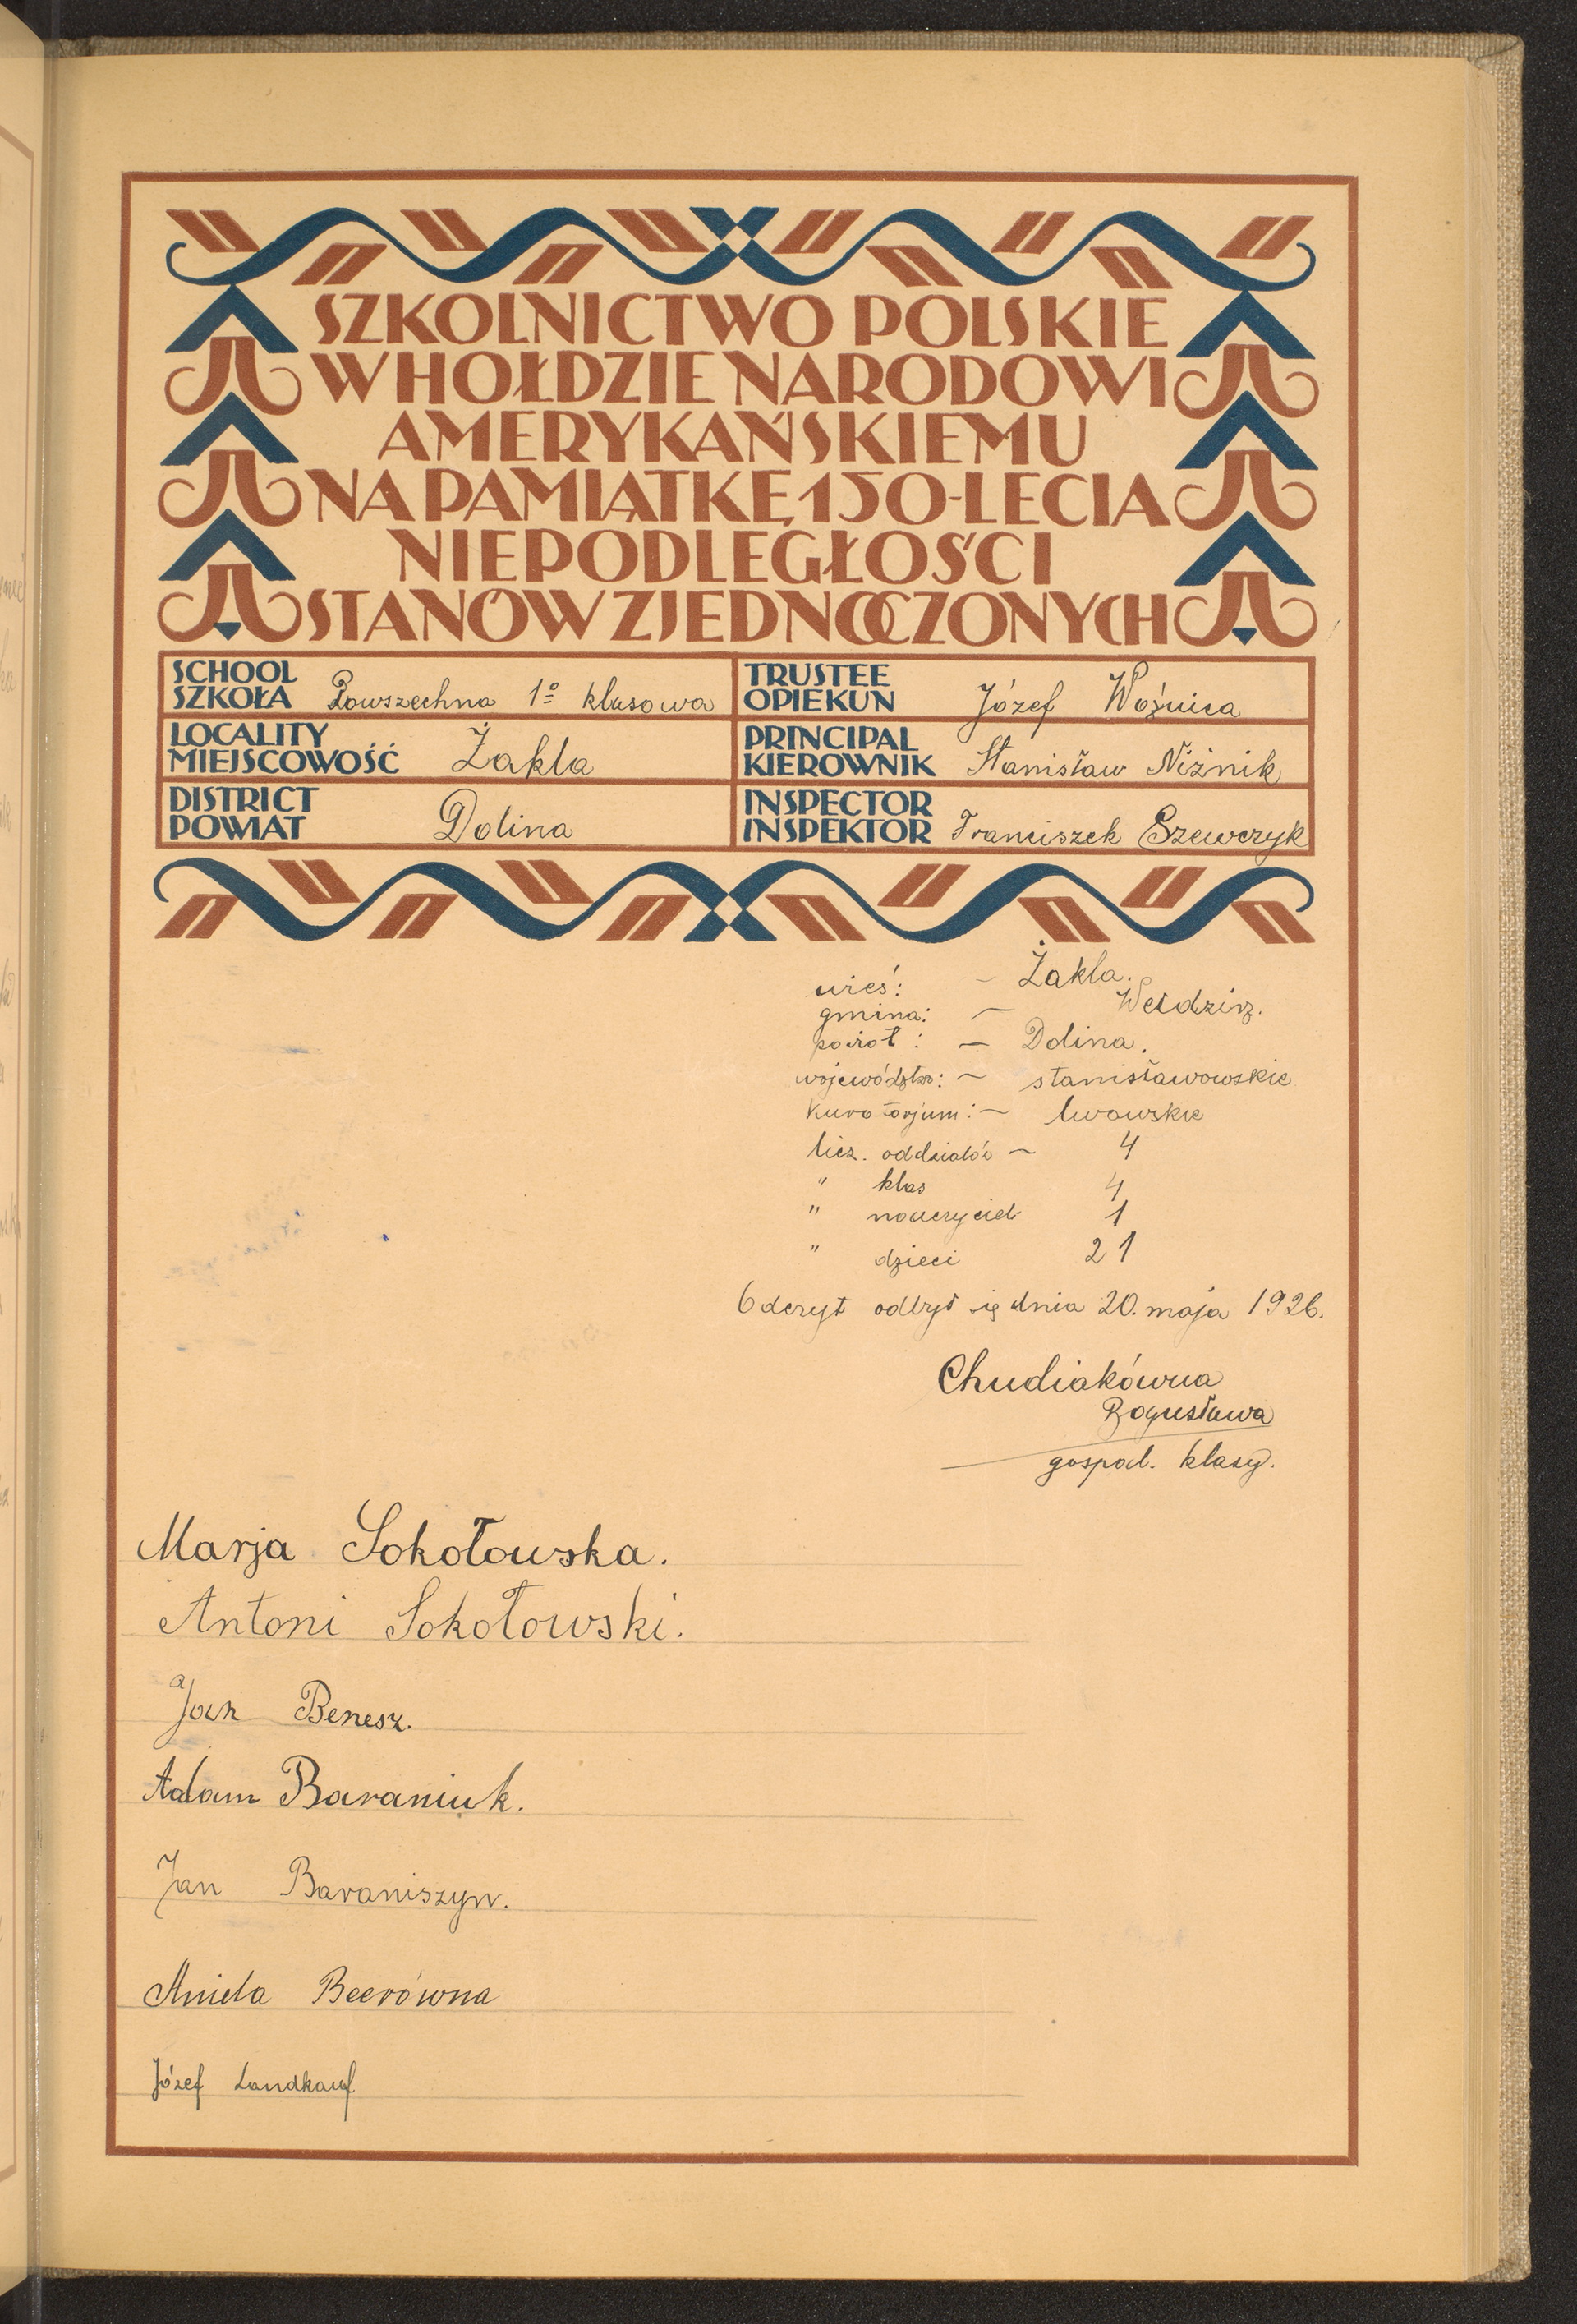 SZKOLNICTWO POLSKIE
W HOŁDZIE NARODOWI
AMERYKAŃSKIEMU
NA PAMIĄTKĘ 150-LECIA
NIEPODLEGŁOŚCI
STANÓW ZJEDNOCZONYCH
SCHOOL
SZKOŁA Powszechna 1º klasowa
TRUSTEE
OPIEKUN Józef Woźnica
LOCALITY
MIEJSCOWOŚĆ Żakla
PRINCIPAL
KIEROWNIK Stanisław Niżnik
DISTRICT
POWIAT Dolina
INSPECTOR
INSPEKTOR Franciszek Szewczyk
wieś: – Żakla.
gmina: –
powiat: – Dolina.
województwo: – stanisławowskie
Kuratorjum: – lwowskie
licz. oddziałów – 4
" klas 4
" nauczycieli 1
" dzieci 21
Odczyt odbył się dnia 20. maja 1926.
Chudiakówna
Bogusława
gospod. klasy.
Marja Sokołowska.
Antoni Sokołowski.
Jan Benesz.
Adam Baraniuk.
Jan Baraniszyn.
Aniela Beerówna
Józef Landkauf